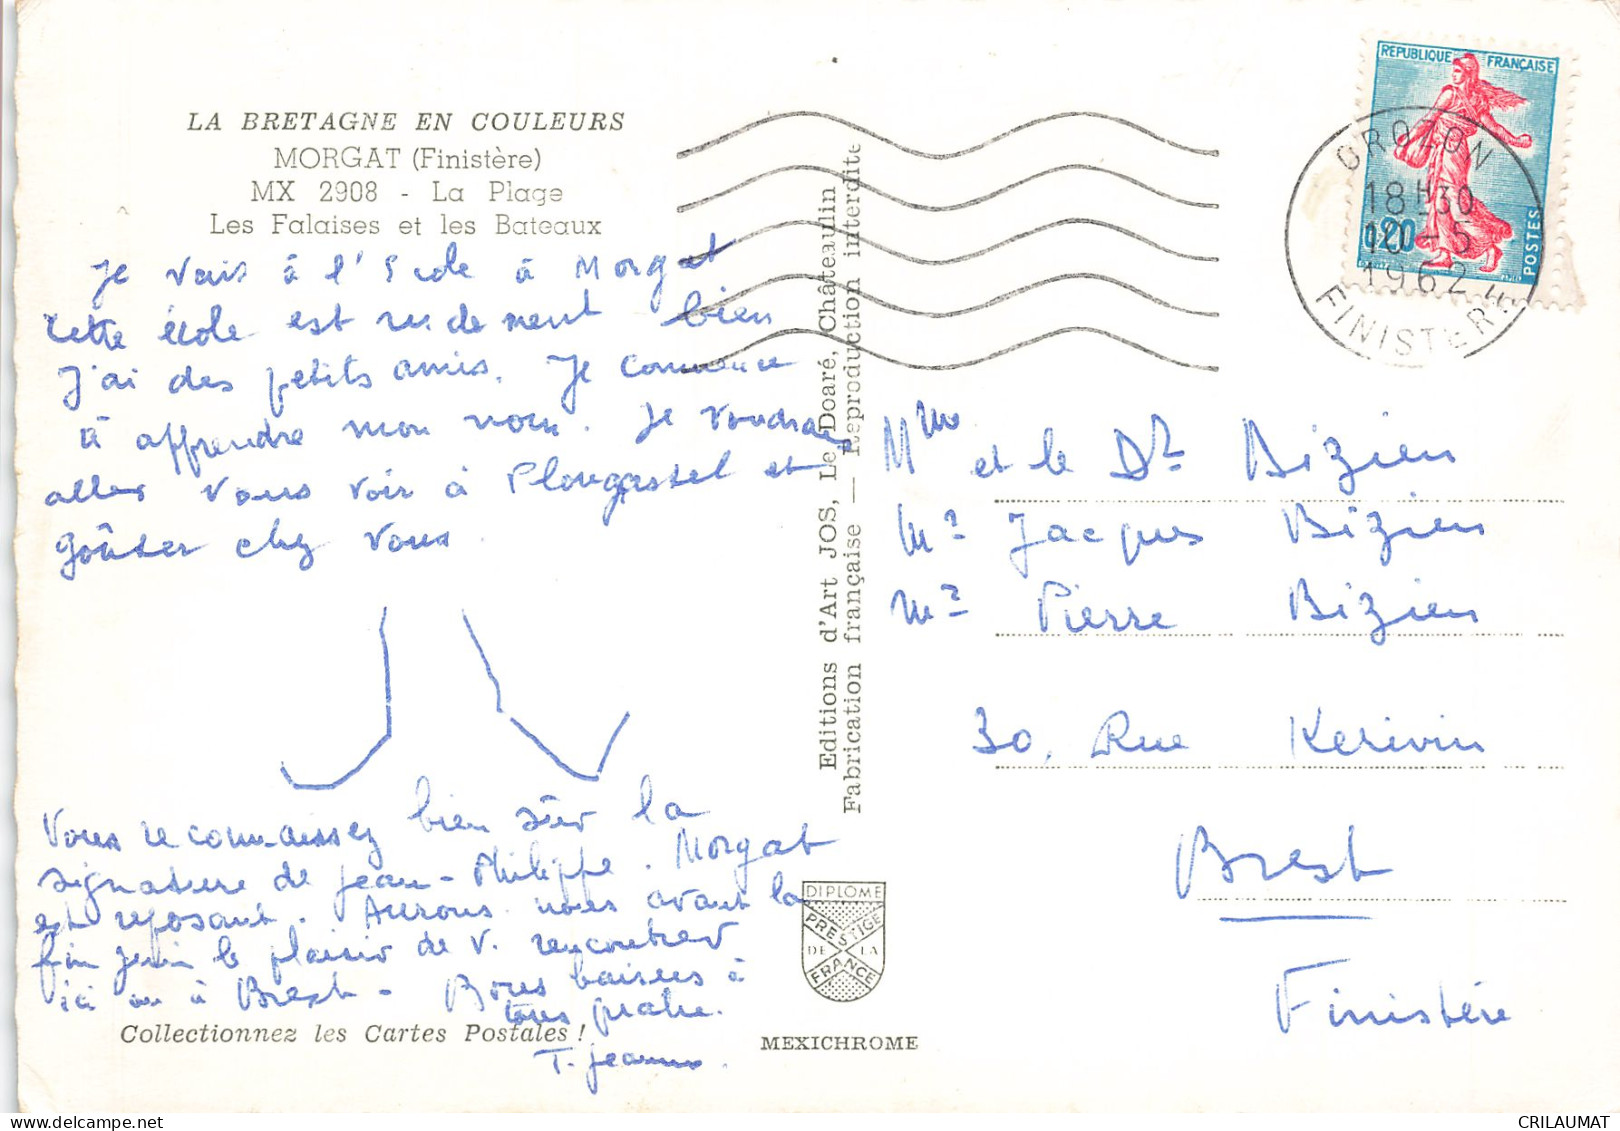 LA BRETAGNE EN COULEURS
MORGAT (Finistère)
MX 2908 - La Plage
Les Falaises et les Bateaux
Je vais à l'école à Morgat
cette école est rudement bien
J'ai des petits amis. Je commence
à apprendre mon nom. Je voudrais
aller vous voir à Plougastel et
goûter chez vous.
Vous reconnaissez bien sûr la
signature de Jean-Philippe. Morgat
est reposant. Aurons nous avant la
fin juin le plaisir de v. rencontrer
ici ou à Brest - Bons baisers à
tous quatre.
T. Jeanne.
Collectionnez les Cartes Postales !
Editions d'Art JOS, Le Doaré, Châteaulin
Fabrication française — Reproduction interdite
DIPLOME
PRESTIGE
DE LA
FRANCE
MEXICHROME
REPUBLIQUE FRANÇAISE
0,20
POSTES
CROZON
18H30
10-5
1962
FINISTERE
Mme et le Dr Bizien
Mr Jacques Bizien
Mr Pierre Bizien
30, Rue Kerivin
Brest
Finistère
CRILAUMAT